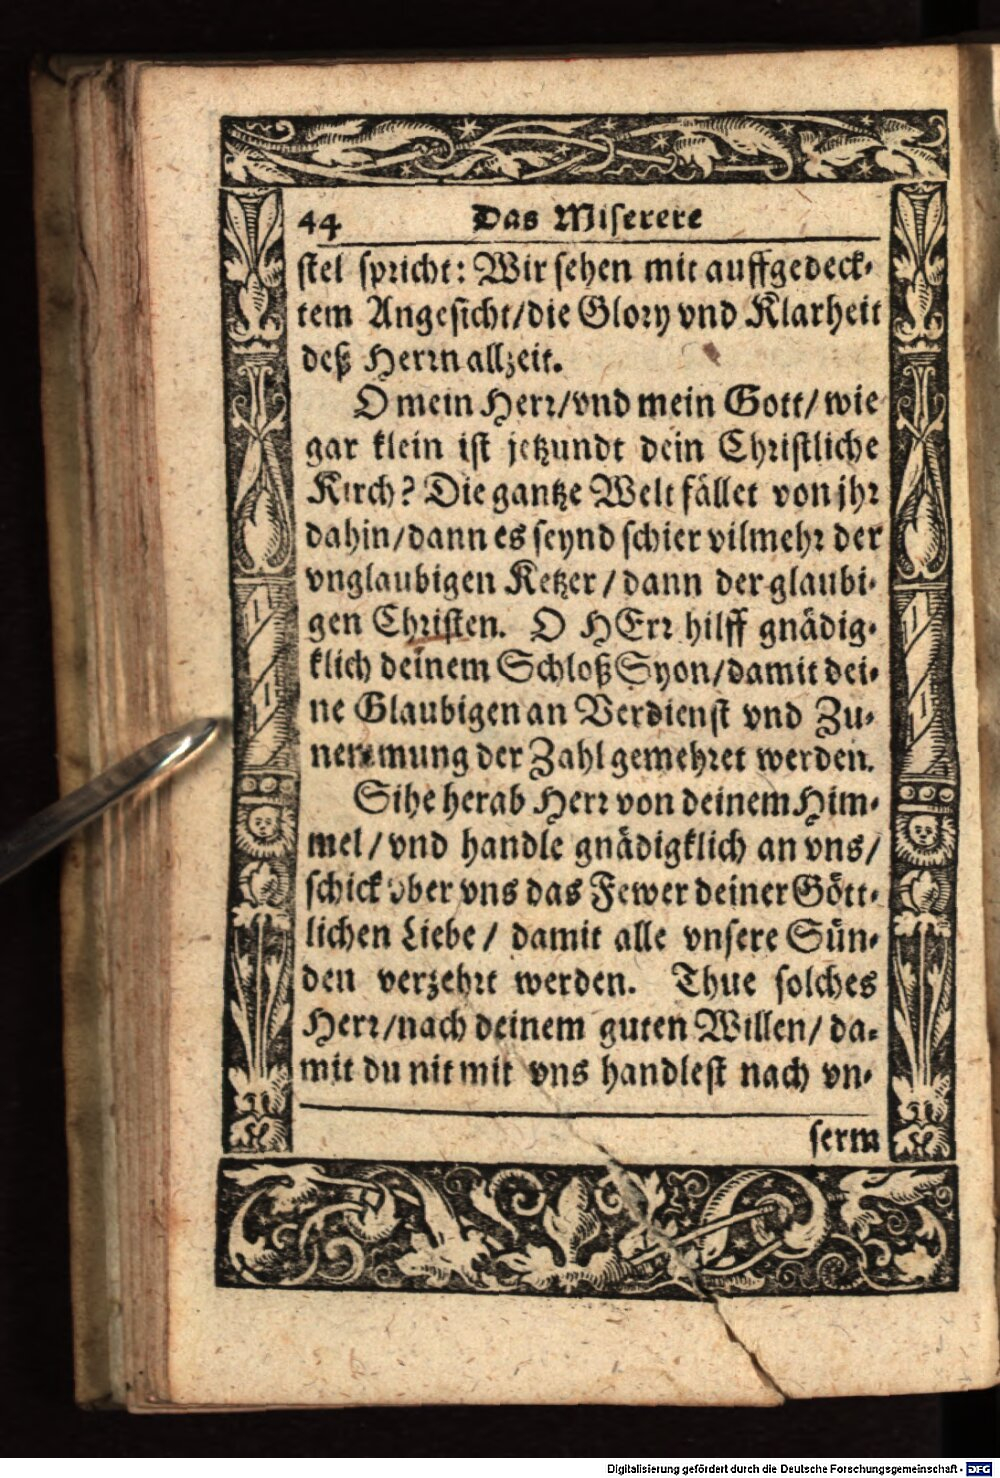 44 Das Miserere
stel spricht: Wir sehen mit auffgedeck-
tem Angesicht/die Glory vnd Klarheit
deß Herrn allzeit.
O mein Herr/vnd mein Gott/ wie
gar klein ist jetzundt dein Christliche
Kirch? Die gantze Welt fället von jhr
dahin/dann es seynd schier vilmehr der
vnglaubigen Ketzer / dann der glaubi-
gen Christen. O HErr hilff gnädig-
klich deinem Schloß Syon/damit dei-
ne Glaubigen an Verdienst vnd Zu-
nemmung der Zahl gemehret werden.
Sihe herab Herr von deinem Him-
mel/ vnd handle gnädigklich an vns/
schick vber vns das Fewer deiner Gött-
lichen Liebe/ damit alle vnsere Sün-
den verzehrt werden. Thue solches
Herr/nach deinem guten Willen/ da-
mit du nit mit vns handlest nach vn-
serm
Digitalisierung gefördert durch die Deutsche Forschungsgemeinschaft - DFG